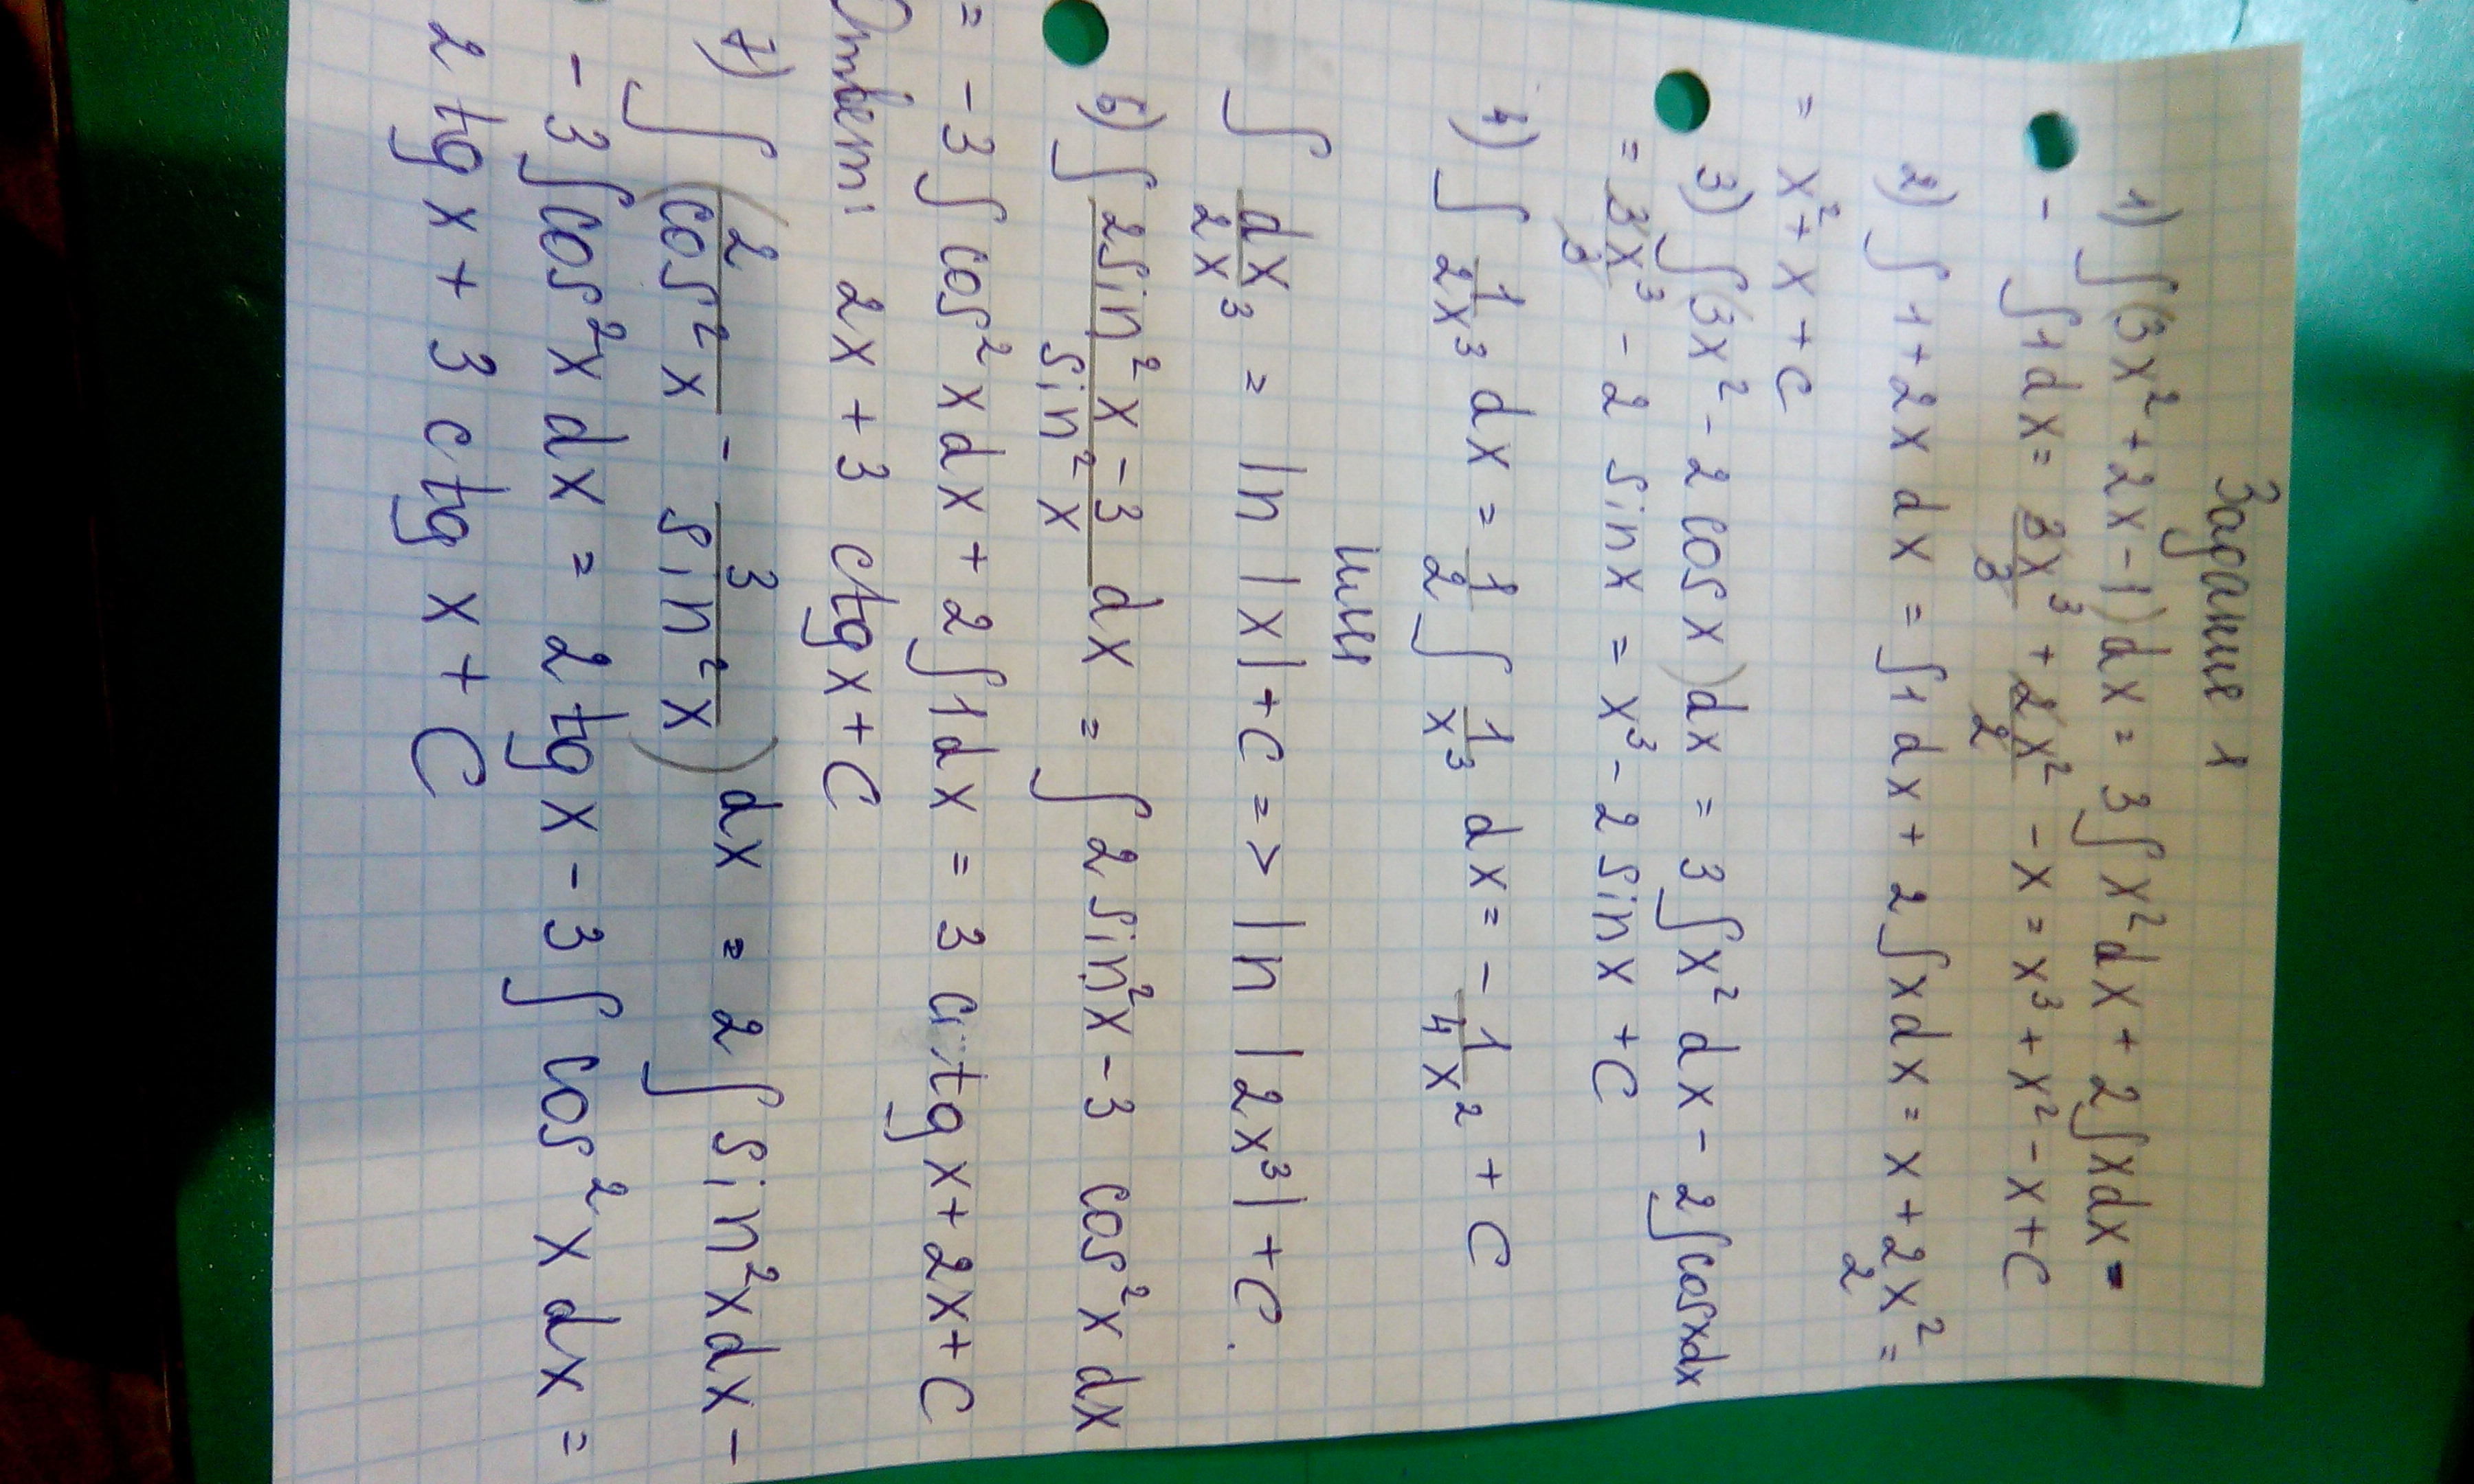 Задание 1
1) ∫(3x² + 2x - 1)dx = 3∫x²dx + 2∫xdx -
- ∫1dx = 3x³/3 + 2x²/2 - x = x³ + x² - x + C
2) ∫1 + 2x dx = ∫1dx + 2∫xdx = x + 2x²/2 =
= x² + x + C
3) ∫(3x² - 2cosx)dx = 3∫x²dx - 2∫cosxdx
= 3x³/3 - 2 sinx = x³ - 2sinx + C
4) ∫ 1/2x³ dx = 1/2 ∫ 1/x³ dx = - 1/4x² + C
или
∫ dx/2x³ = ln |x| + C => ln |2x³| + C.
6) ∫ 2sin²x - 3/sin²x dx = ∫ 2sin²x - 3 cos²x dx
= -3∫cos²xdx + 2∫1dx = 3 ctg x + 2x + C
Ответ: 2x + 3 ctg x + C
7) ∫(2/cos²x - 3/sin²x)dx = 2∫sin²xdx -
- 3∫cos²xdx = 2tgx - 3∫cos²xdx =
2 tg x + 3 ctg x + C